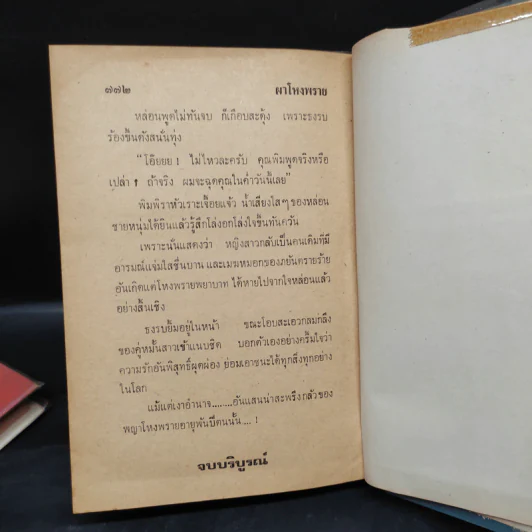 ๗๗๒ ผาโหงพราย
หล่อนพูดไม่ทันจบ ก็เกือบสะดุ้ง เพราะธงรบ
ร้องขึ้นดังสนั่นทุ่ง
"โอ๊ยยย! ไม่ไหวละครับ คุณพิมพูดจริงหรือ
เปล่า? ถ้าจริง ผมจะฉุดคุณในค่ำวันนี้เลย"
พิมพิราหัวเราะเจื้อยแจ้ว น้ำเสียงใสๆ ของหล่อน
ชายหนุ่มได้ยินแล้วรู้สึกโล่งอกโล่งใจขึ้นทันควัน
เพราะนั่นแสดงว่า หญิงสาวกลับเป็นคนเดิมที่มี
อารมณ์แจ่มใสชื่นบาน และเมฆหมอกของภยันตรายร้าย
อันเกิดแต่โหงพรายพยาบาท ได้หายไปจากใจหล่อนแล้ว
อย่างสิ้นเชิง
ธงรบยิ้มอยู่ในหน้า ขณะโอบสะเอวกลมกลึง
ของคู่หมั้นสาวเข้าแนบชิด บอกตัวเองอย่างครึ้มใจว่า
ความรักอันพิสุทธิ์ผุดผ่อง ย่อมเอาชนะได้ทุกสิ่งทุกอย่าง
ในโลก
แม้แต่เงาอำนาจ........อันแสนน่าสะพรึงกลัวของ
พญาโหงพรายอายุพันปีตนนั้น....!
จบบริบูรณ์